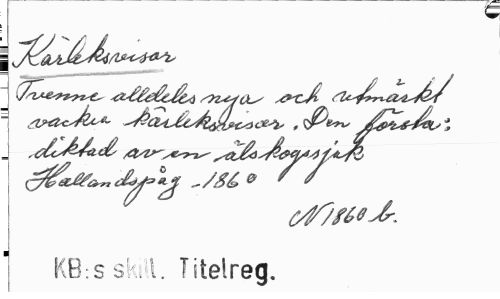 Kärleksvisor
Tvenne alldeles nya och utmärkt
vackra kärleksvisor. Den första:
diktad av en älskogssjuk
Hallandspåg -1860
N 1860 b.
KB:s skill. Titelreg.